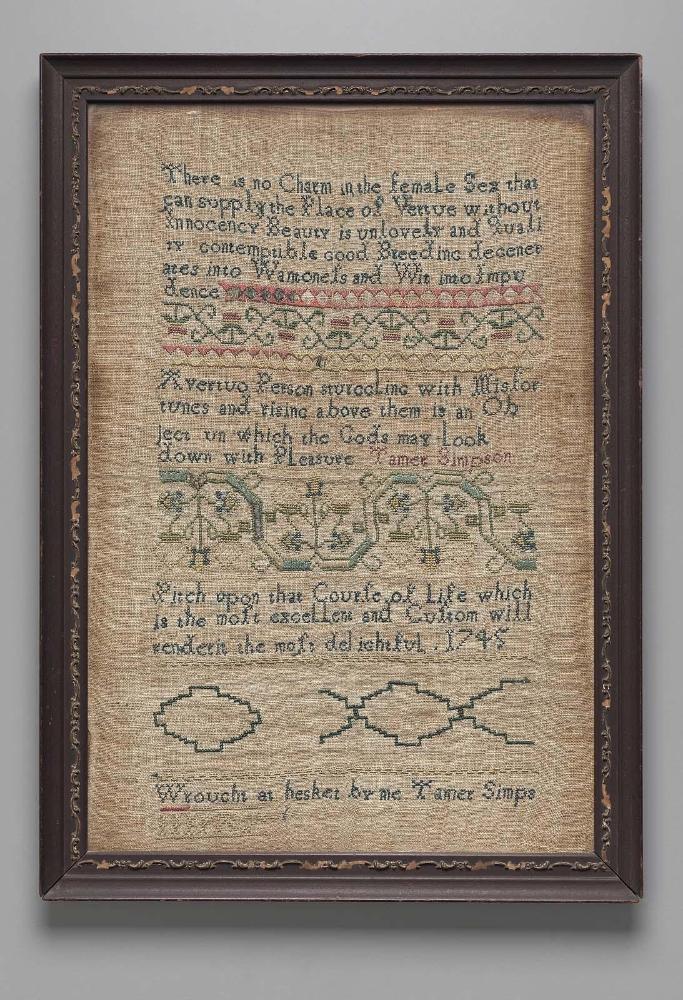 There is no Charm in the female Sex that
can supply the Place of Vertue without
Innocency Beauty is unlovely and Quali
ty contemptible good Breeding degener
ates into Wantoneſs and Wit into Impu
dence
A vertuo Person sturgling with Misfor
tunes and rising above them is an Ob
ject un which the Gods may Look
down with Pleasure Tamer Simpson
Pitch upon that Courſe of Life which
is the moſt excellent and Cuſtom will
render it the moſt delightful . 1745
Wrought at hesket by me Tamer Simps